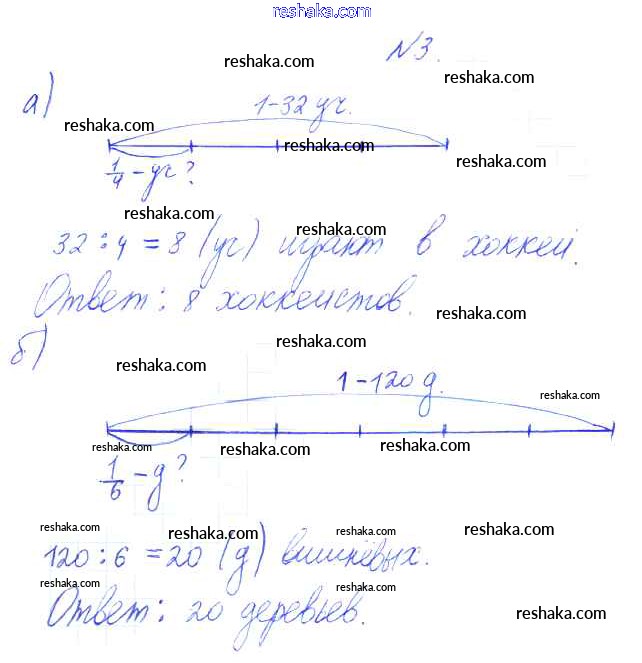 www.reshaka.com
№3.
reshaka.com
reshaka.com
а)
1-32 уч.
reshaka.com
reshaka.com
reshaka.com
1/4 - уч?
reshaka.com
reshaka.com
32 : 4 = 8 (уч) играют в хоккей.
Ответ: 8 хоккеистов.
reshaka.com
б)
reshaka.com
reshaka.com
1-120 д.
reshaka.com
reshaka.com
reshaka.com
reshaka.com
1/6 - д?
reshaka.com
reshaka.com
reshaka.com
reshaka.com
120 : 6 = 20 (д) вишнёвых.
reshaka.com
reshaka.com
Ответ: 20 деревьев.
reshaka.com
reshaka.com